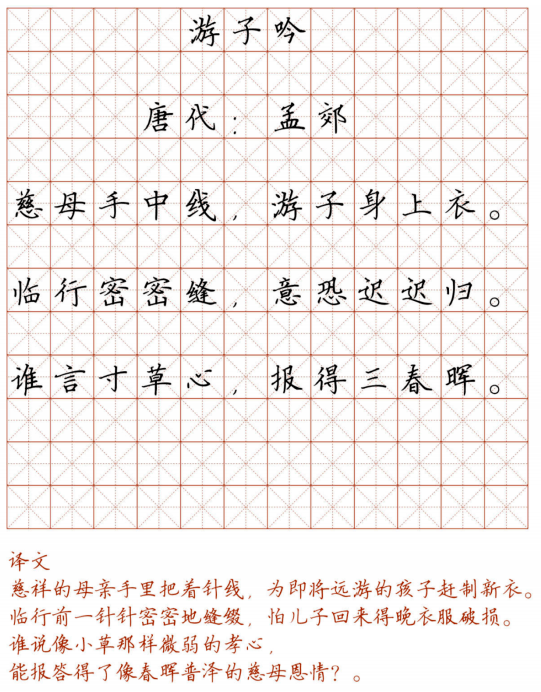 游子吟
唐代：孟郊
慈母手中线，游子身上衣。
临行密密缝，意恐迟迟归。
谁言寸草心，报得三春晖。
译文
慈祥的母亲手里把着针线，为即将远游的孩子赶制新衣。
临行前一针针密密地缝缀，怕儿子回来得晚衣服破损。
谁说像小草那样微弱的孝心，
能报答得了像春晖普泽的慈母恩情？。